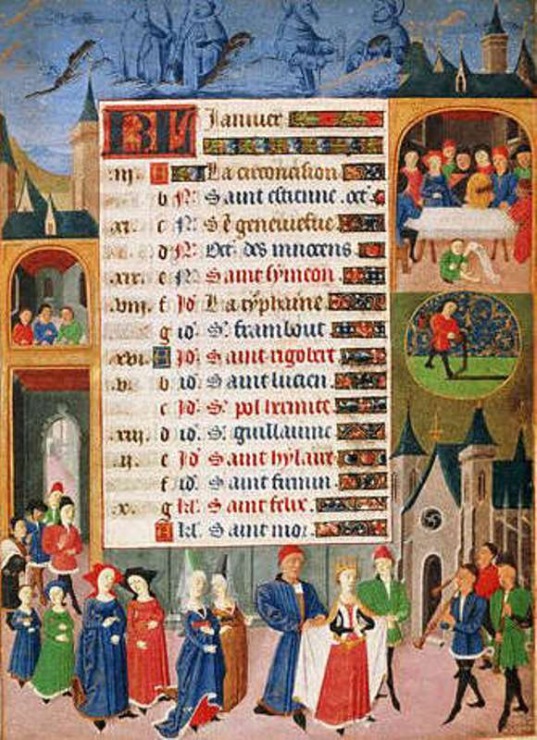 KL Januier
.iij. A La circoncision
b N. Saint estienne. oct.
.xi. c N. Se geneuiefue
d N. Oct. des innocens.
.xix. e N. Saint symeon.
.viij. f Id La typhaine
g id. S. frambout
.xvi. A Id. Saint rigobert
.v. b id Saint lucien.
c Id. S. pol hermite
.xiii. d id. S. guillaume
.ii. e Id Saint hylaire
f id. Saint fumin
.x. g kl. Saint felix.
A kl. Saint mor.